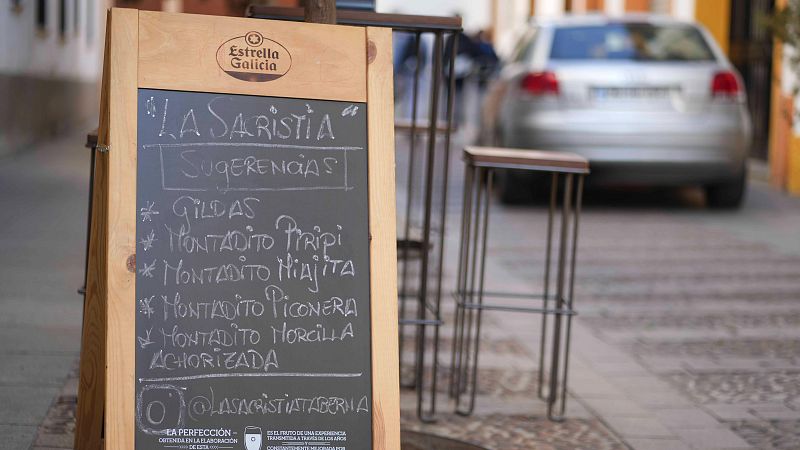 Estrella
Galicia
"LA SACRISTÍA"
SUGERENCIAS
* GILDAS
* MONTADITO PIRIPI
* MONTADITO MIAJITA
* MONTADITO PICONERA
* MONTADITO MORCILLA
ACHORIZADA
@LASACRISTIATABERNA
LA PERFECCIÓN
OBTENIDA EN LA ELABORACIÓN
DE ESTA
ES EL FRUTO DE UNA EXPERIENCIA
TRANSMITIDA A TRAVÉS DE LOS AÑOS
Y
CONSTANTEMENTE MEJORADA POR